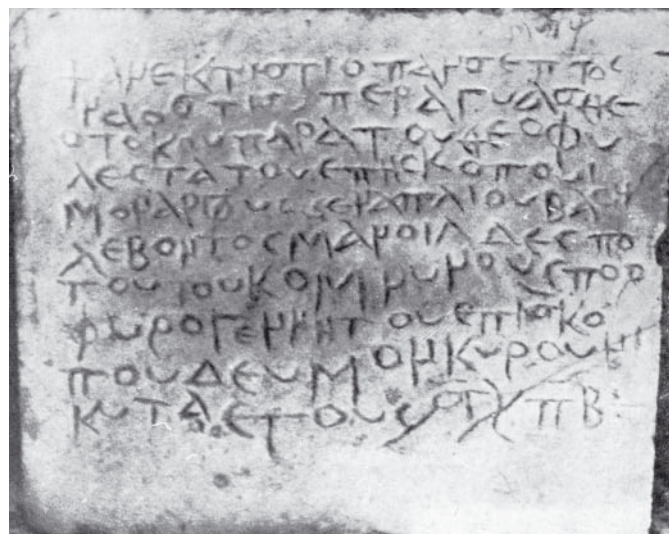 + ΑΝΕΚΤΙΣΤΙ Ο ΠΑΝΣΕΠΤΟΣ
ΝΑΟΣ ΤΙΣ ΥΠΕΡΑΓΥΑΣ ΘΕ
ΟΤΟΚΟΥ ΠΑΡΑ ΤΟΥ ΘΕΟΦΥ
ΛΕΣΤΑΤΟΥ ΕΠΗΣΚΟΠΟΥ Ι
ΜΟΝ ΑΡΓΟΥΣ ΒΑΣΗ
ΛΕΒΟΝΤΟΣ ΜΑΝΟΙΛ ΔΕΣΠΟ
ΤΟΥ ΙΟΥ ΚΟΜΝΥΝΟΥ Ϛ ΠΟΡ
ΦΥΡΟΓΕΝΝΗΤΟΥ ΕΠΙΣΚΟ
ΠΟΥΔΕΥΜΟΝ ΚΥΡΟΥ ΝΗ
ΚΥΤΑ ΕΤΟΥΣ ϚΧΠΒ